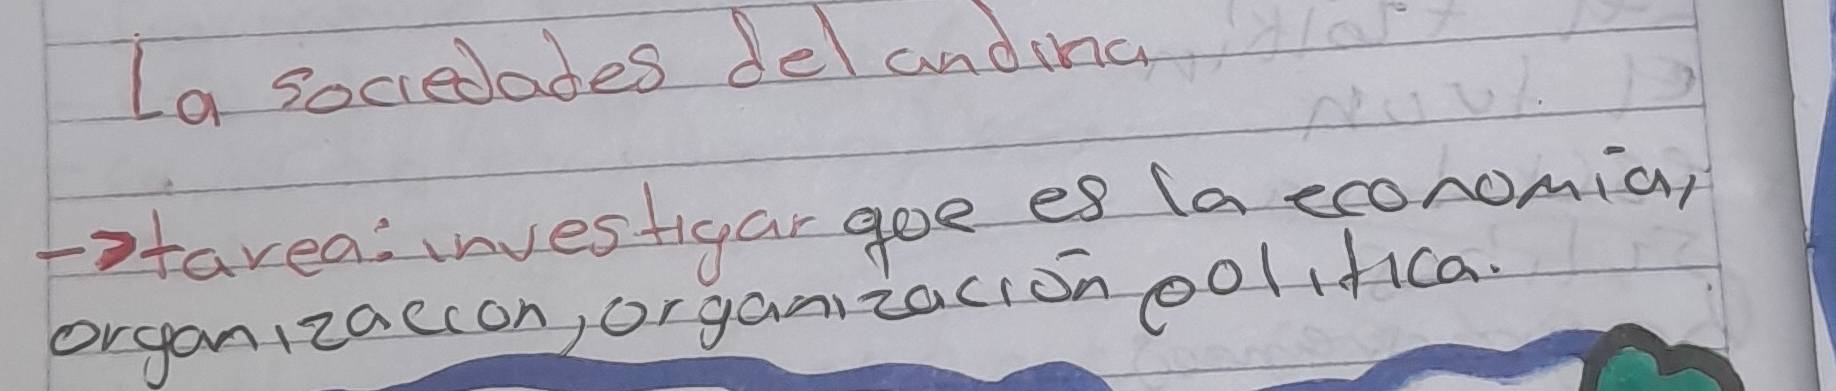 La sociedades del andina
→tarea: investigar qoe es la economia,
organización, organización política.